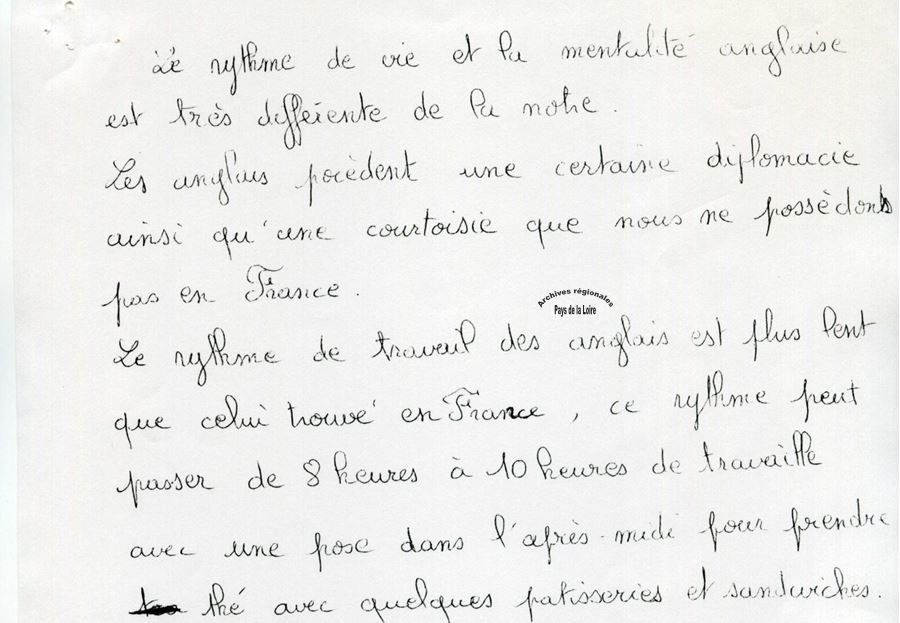 Le rythme de vie et la mentalité anglaise
est très différente de la notre.
Les anglais pocèdent une certaine diplomacie
ainsi qu'une courtoisie que nous ne possèdons
pas en France.
Archives régionales
Pays de la Loire
Le rythme de travail des anglais est plus lent
que celui trouvé en France, ce rythme peut
passer de 8 heures à 10 heures de travaille
avec une pose dans l'après-midi pour prendre
thé avec quelques patisseries et sandwiches.